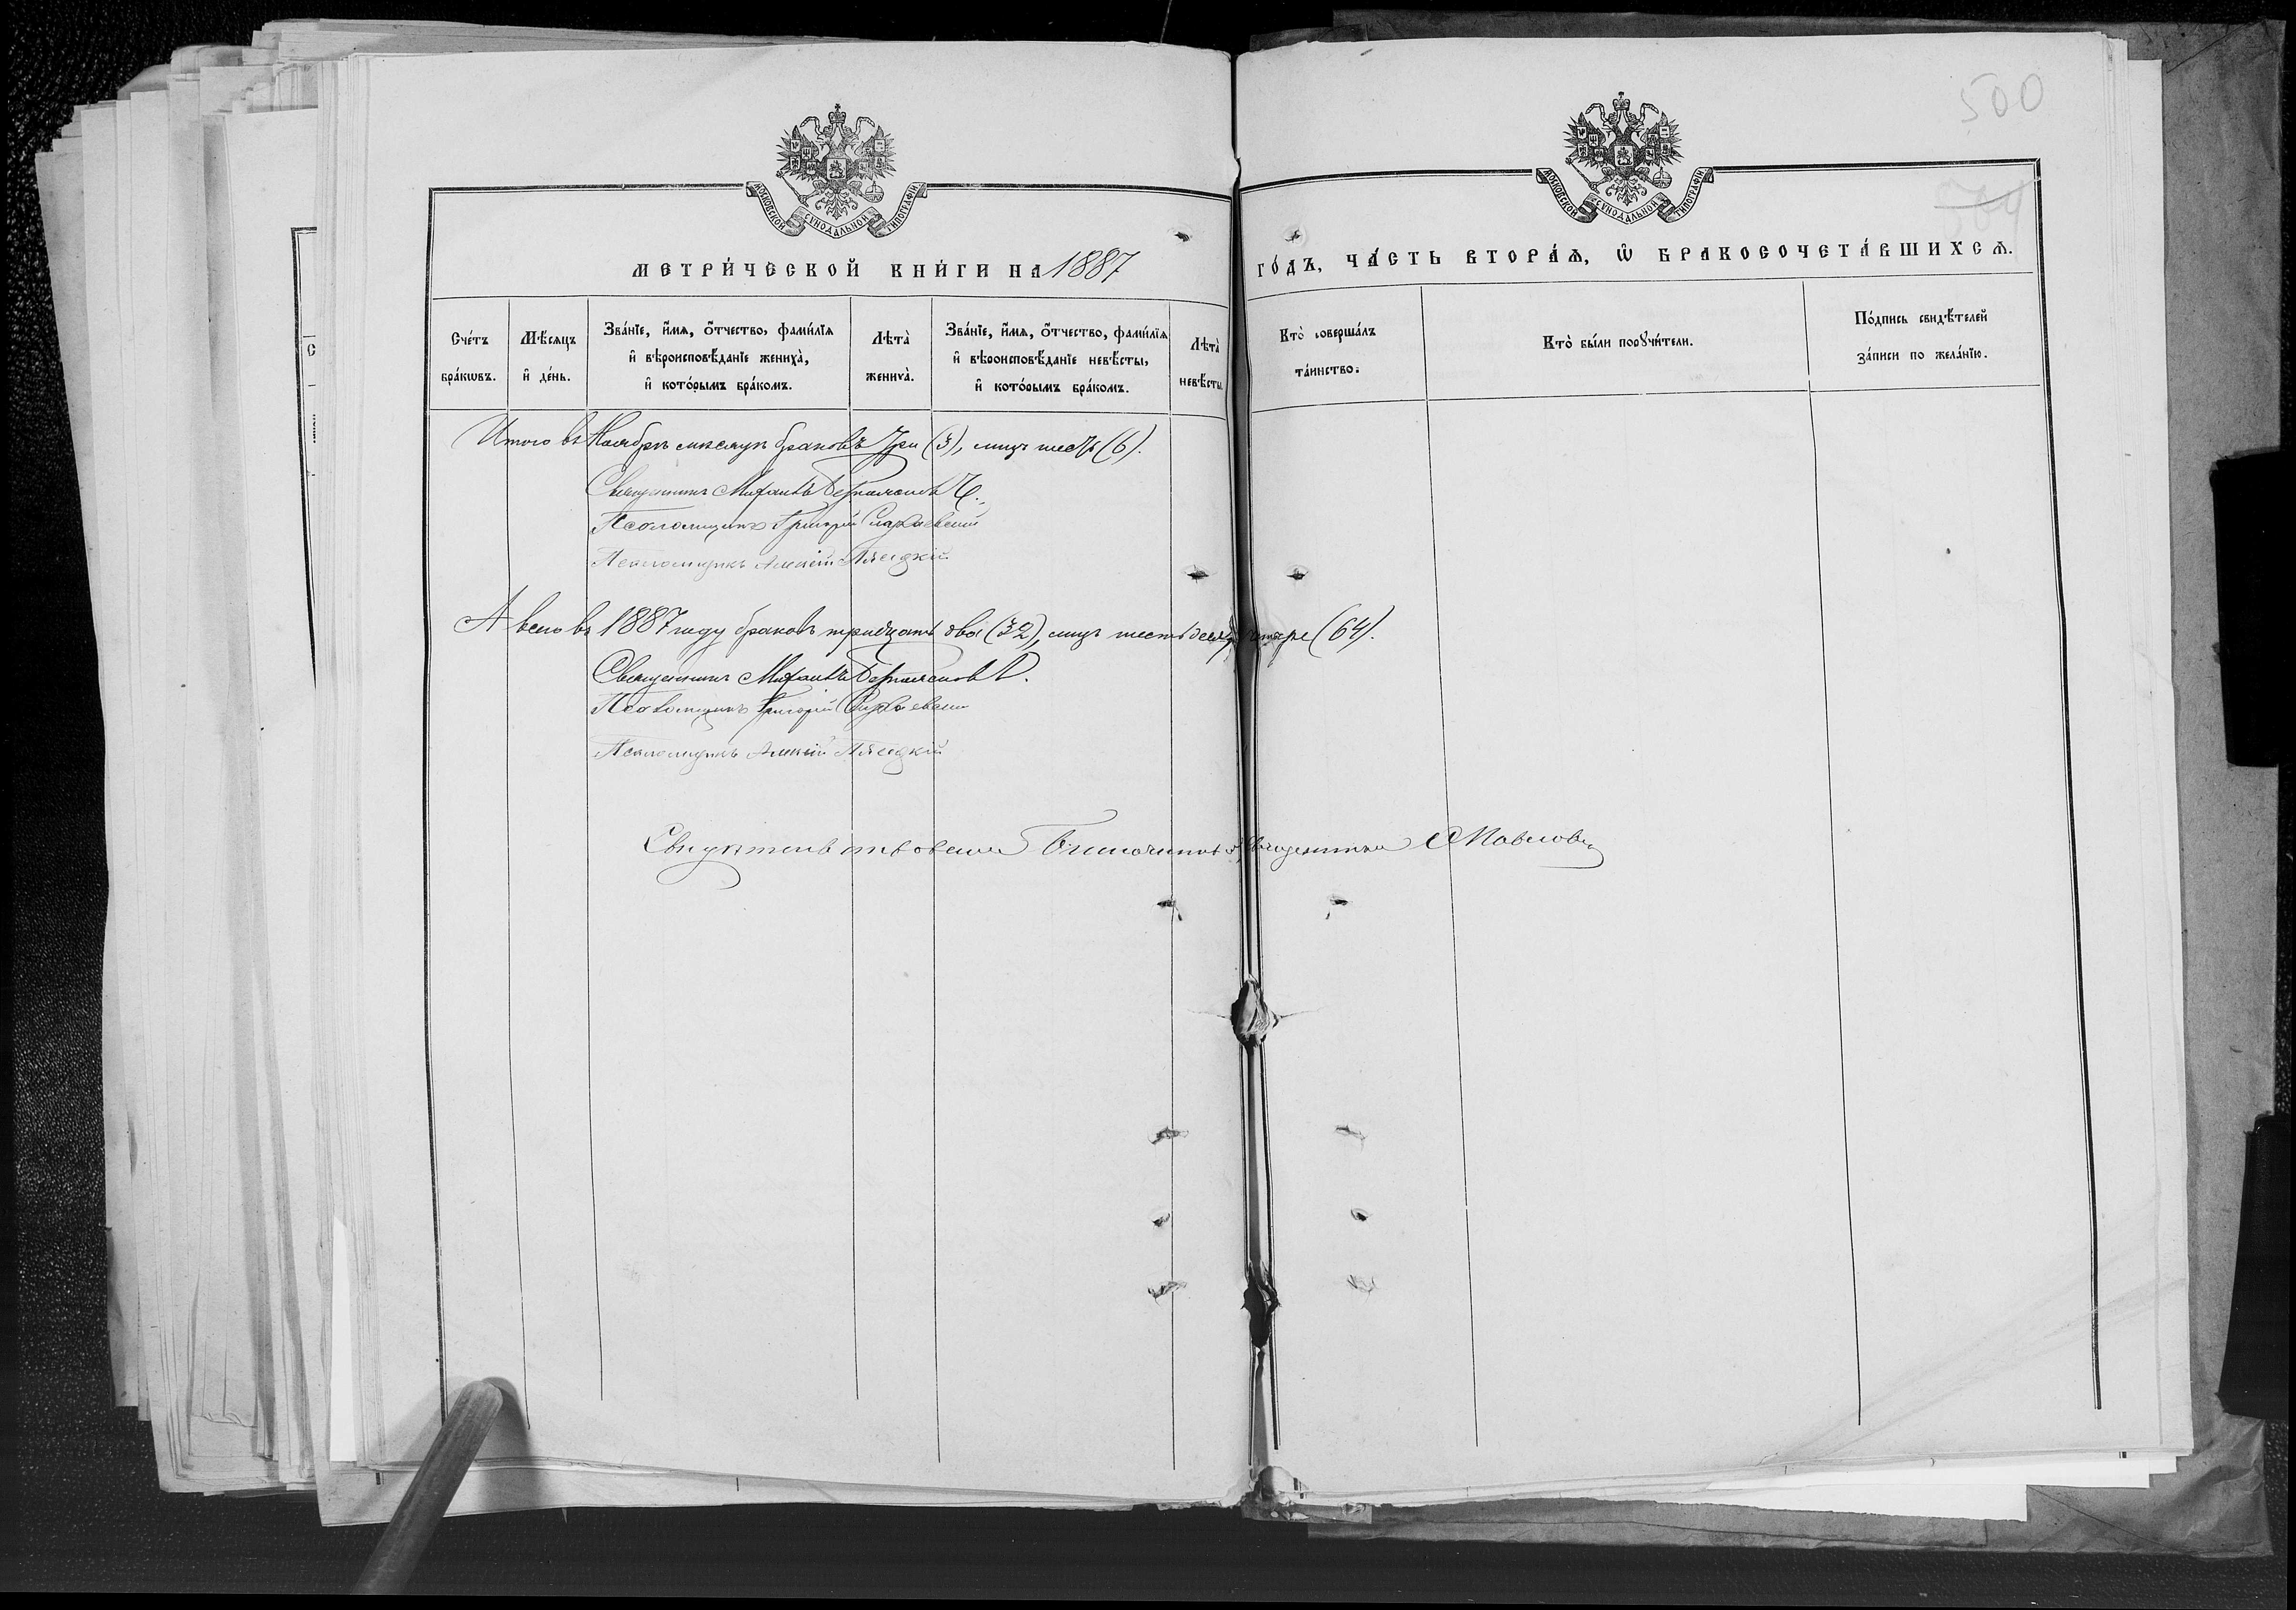 500
МОСКОВСКОЙ СѴНОДАЛЬНОЙ ТИПОГРАФІИ
МОСКОВСКОЙ СѴНОДАЛЬНОЙ ТИПОГРАФІИ
МЕТРИ́ЧЕСКОЙ КНИ́ГИ НА 1887 ГО́ДЪ, ЧА́СТЬ ВТОРА́Ѧ, Ѡ҆ БРАКОСОЧЕТА́ВШИХСѦ.
Сче́тъ бра́кѡвъ.
Мѣ́сѧцъ и҆ де́нь.
Зва́нїе, и҆́мѧ, ѻ҆́тчество, фами́лїѧ и҆ вѣроисповѣ́данїе жениха̀, и҆ кото́рымъ бра́комъ.
Лѣта̀ жениха̀.
Зва́нїе, и҆́мѧ, ѻ҆́тчество, фами́лїѧ и҆ вѣроисповѣ́данїе невѣ́сты, и҆ кото́рымъ бра́комъ.
Лѣта̀ невѣ́сты.
Кто̀ соверша́лъ та́инство.
Кто̀ бы́ли порꙋчи́тели.
По́дпись свидѣ́телей за́писи по жела́нїю.
Итого въ Ноябрѣ мѣсяцѣ браковъ три (3), лицъ шесть (6).
Священникъ Михаилъ
Псаломщикъ Григорій
Псаломщикъ Алексій Пясецкій
А всего въ 1887 году браковъ тридцать два (32), лицъ шестьдесятъ четыре (64).
Священникъ Михаилъ
Псаломщикъ Григорій
Псаломщикъ Алексій Пясецкій
Свидѣтельствовалъ Благочинный Священникъ Павловъ